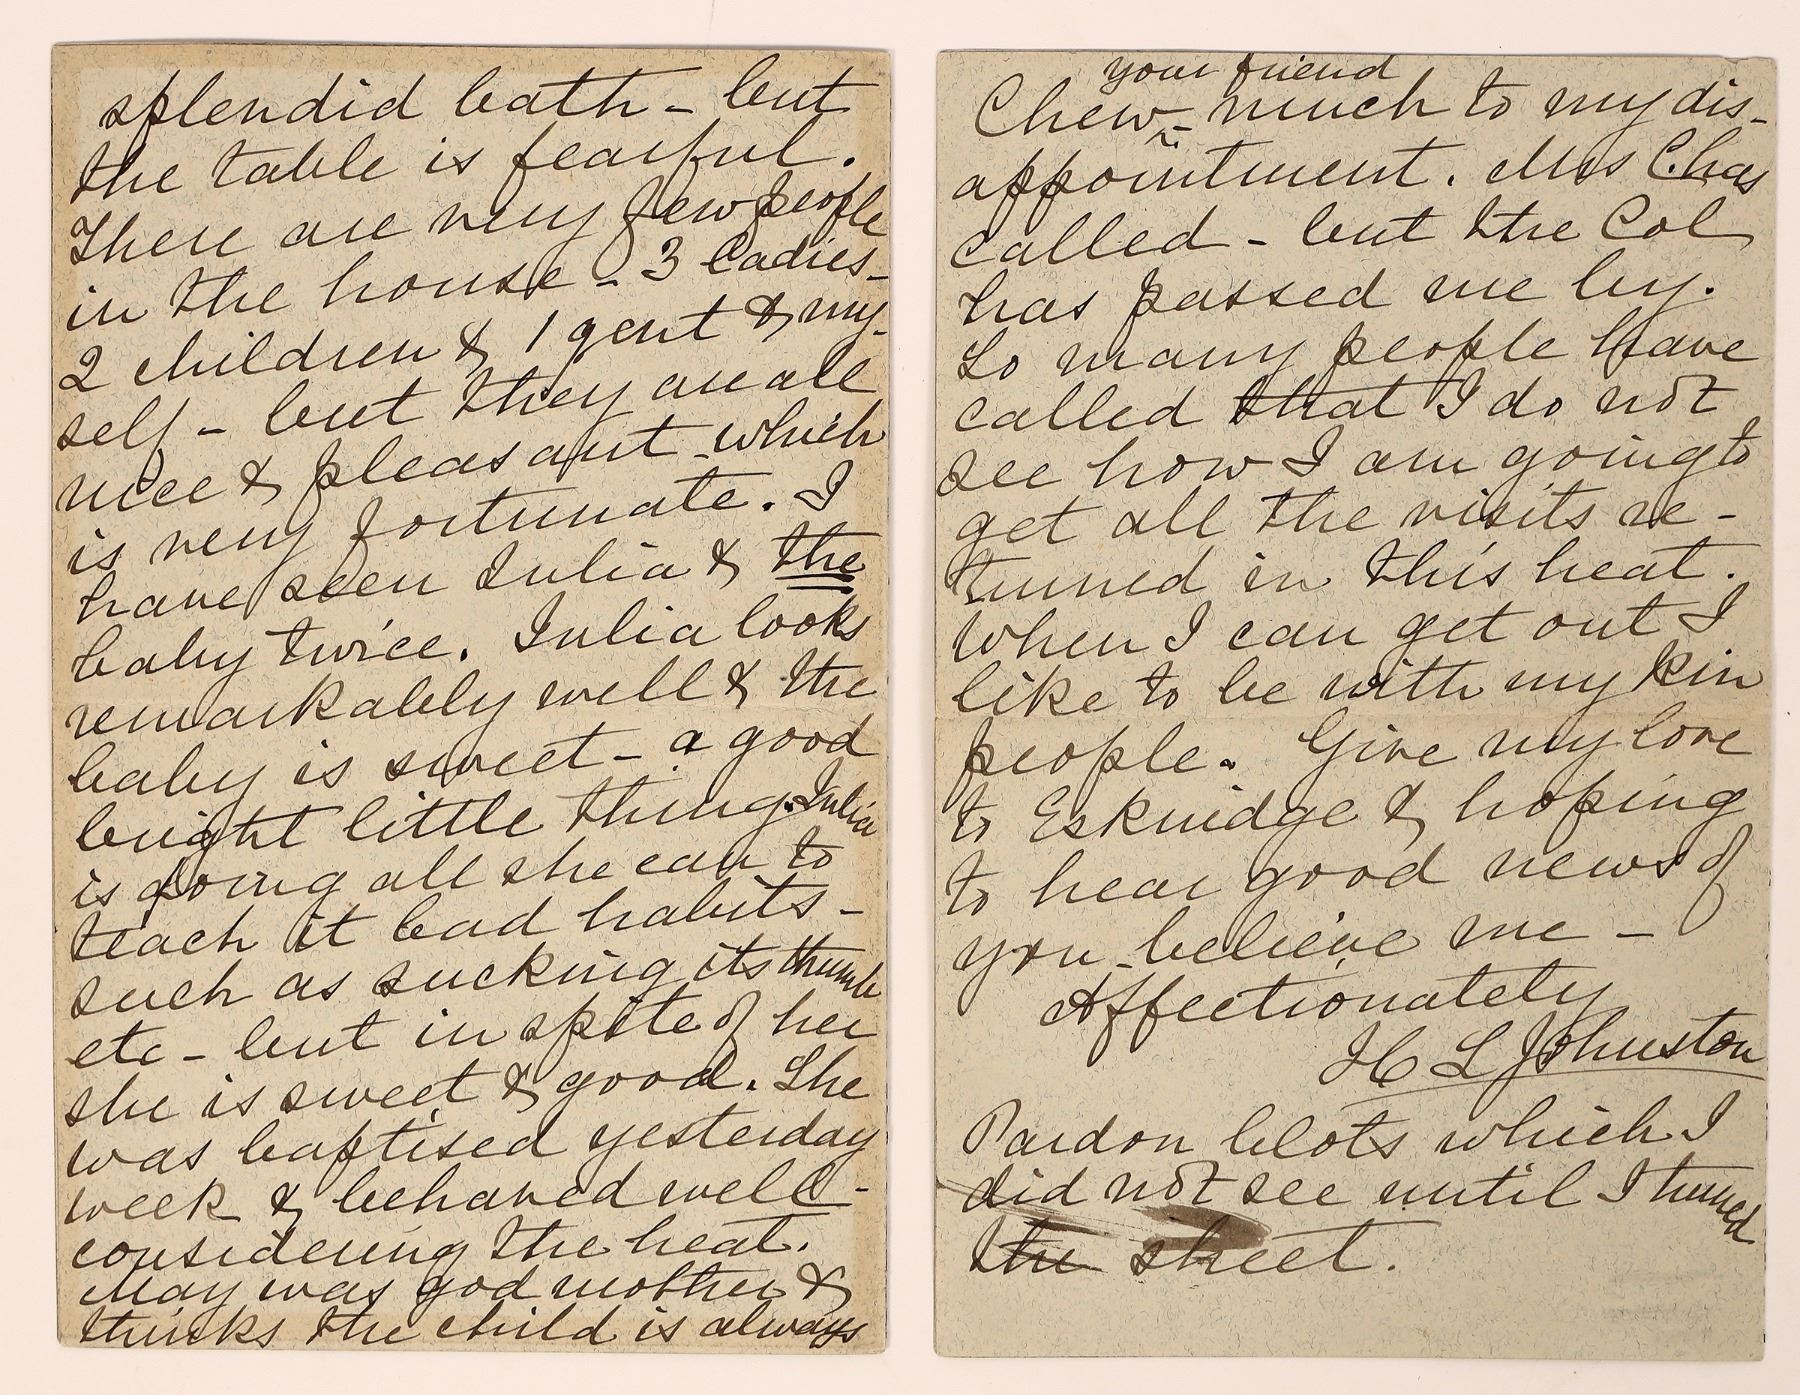 splendid bath - but
the table is fearful.
There are very few people
in the house - 3 ladies -
2 children & 1 gent & my-
self - but they are all
nice & pleasant - which
is very fortunate. I
have seen Julia & the
baby twice. Julia looks
remarkably well & the
baby is sweet - a good
bright little thing. Julia
is doing all she can to
teach it bad habits -
such as sucking its thumb
etc - but in spite of her
she is sweet & good. She
was baptised yesterday
week & behaved well -
considering the heat.
May was god mother &
thinks the child is always
your friend
Chew - much to my dis-
appointment. Mrs Chas
called - but the Col
has passed me by.
So many people have
called that I do not
see how I am going to
get all the visits re-
turned in this heat.
When I can get out I
like to be with my kin
people. Give my love
to Eskridge & hoping
to hear good news of
you believe me -
Affectionately
H L Johnston
Pardon blots which I
did not see until I turned
the sheet.